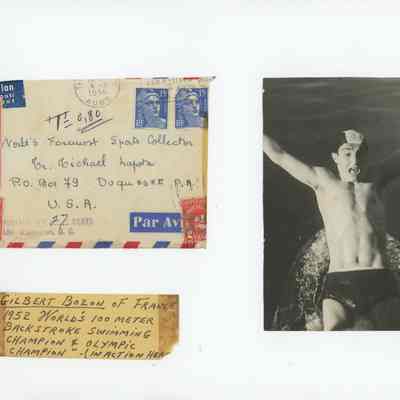 1956
AUBE
15
15
RF
RF
T 0,80
World's Foremost Sports Collector
Mr. Michael
P.O. Box 79 Duquesne, P.A.
U.S.A.
27
Par Avi
GILBERT BOZON OF FRANCE
1952 WORLD'S 100 METER
BACKSTROKE SWIMMING
CHAMPION & OLYMPIC
CHAMPION - (IN ACTION HER